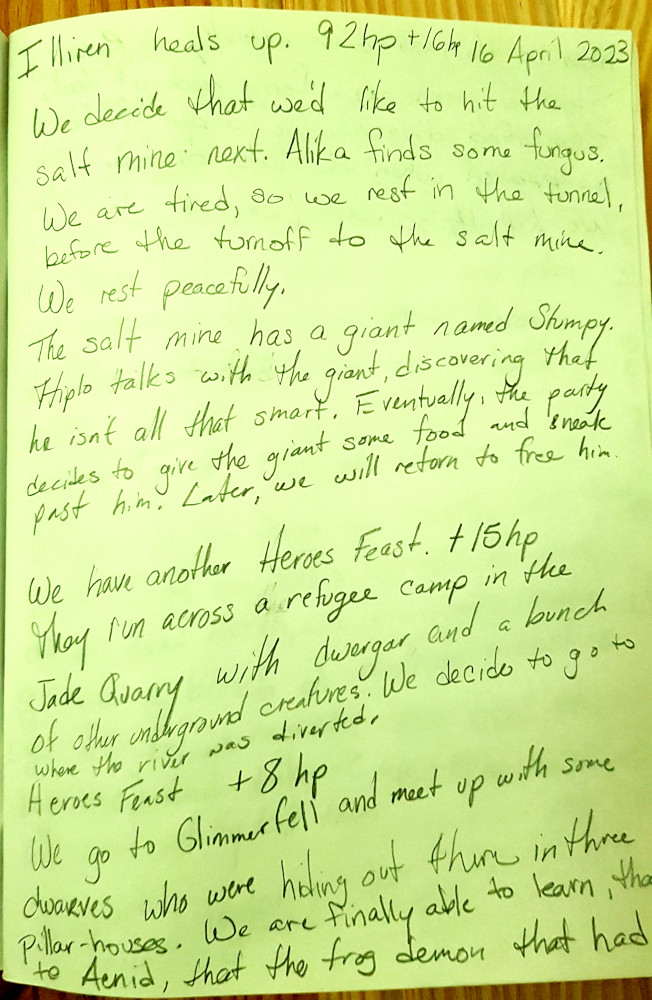 Illiren heals up. 92hp +16hp 16 April 2023
We decide that we'd like to hit the
salt mine next. Alika finds some fungus.
We are tired, so we rest in the tunnel,
before the turnoff to the salt mine.
We rest peacefully.
The salt mine has a giant named Stumpy.
Hiplo talks with the giant, discovering that
he isn't all that smart. Eventually, the party
decides to give the giant some food and sneak
past him. Later, we will return to free him.
We have another Heroes Feast. +15hp
They run across a refugee camp in the
Jade Quarry with dwergar and a bunch
of other underground creatures. We decide to go to
where the river was diverted.
Heroes Feast +8hp
We go to Glimmerfell and meet up with some
dwarves who were hiding out there in three
pillar-houses. We are finally able to learn, tha
to Aenid, that the frog demon that had